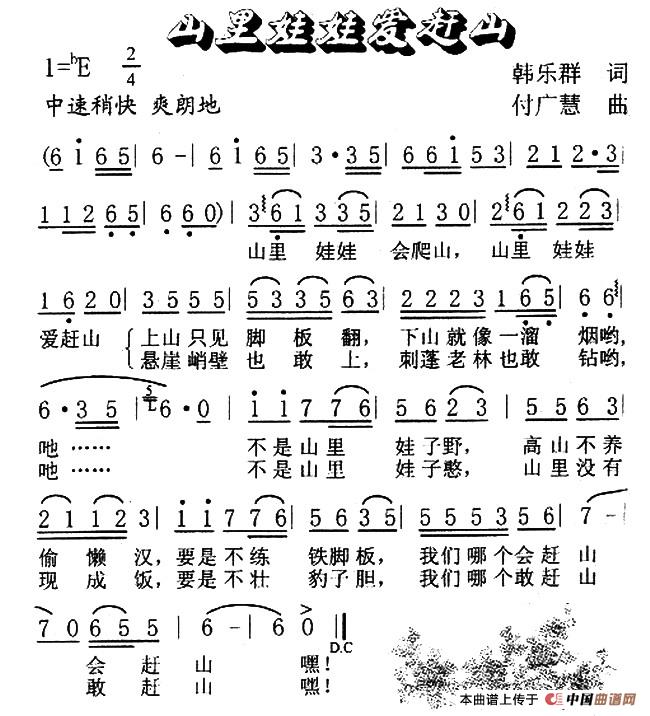 山里娃娃爱赶山
1=ᵇE 2/4
韩乐群 词
中速稍快 爽朗地
付广慧 曲
(6 i 6 5 | 6 - | 6 i 6 5 | 3 · 3 5 | 6 6 i 5 3 | 2 1 2 · 3 |
1 1 2 6 5 | 6 6 0) | 3 6 1 3 3 5 | 2 1 3 0 | 2 6 1 2 2 3 |
山里 娃娃 会爬山， 山里 娃娃
1 6 2 0 | 3 5 5 5 | 5 3 3 5 6 3 | 2 2 2 2 1 6 5 | 6 6 |
爱赶山 上山只见 脚 板 翻， 下山就像一溜 烟哟，
悬崖峭壁 也 敢 上， 刺蓬老林也敢 钻哟，
6 · 3 5 | 6 · 0 | i i 7 7 6 | 5 6 2 3 | 5 6 3 5 |
吔…… 不是山里 娃子野， 高山不养
吔…… 不是山里 娃子憨， 山里没有
2 1 1 2 3 | i i 7 7 6 | 5 6 3 5 | 5 5 5 3 5 6 | 7 - |
偷 懒 汉，要是不练 铁脚板， 我们哪个会赶 山
现 成 饭，要是不壮 豹子胆， 我们哪个敢赶 山
7 0 6 5 5 | i - | 6 - | 6 0 ‖
D.C
会 赶 山 嘿！
敢 赶 山 嘿！
本曲谱上传于 中国曲谱网